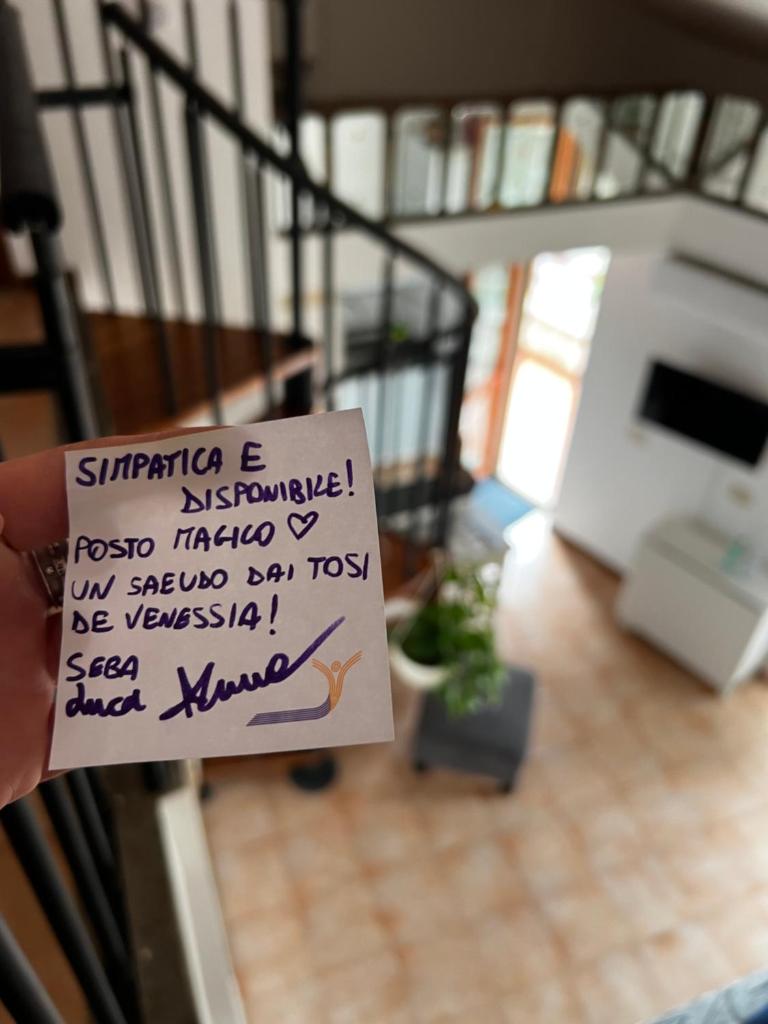 SIMPATICA E
DISPONIBILE!
POSTO MAGICO ♡
UN SAEUDO DAI TOSI
DE VENESSIA!
SEBA
Luca